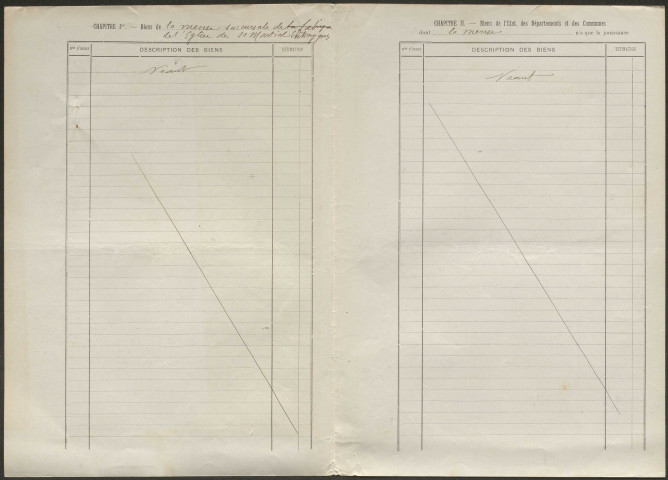 CHAPITRE Ier. — Biens de la mense succursale de
de l'Eglise de St Martial
Nos D'ORDRE DESCRIPTION DES BIENS ESTIMATION
Néant
CHAPITRE II. — Biens de l'Etat, des Départements et des Communes
dont la mense n'a que la jouissance
Nos D'ORDRE DESCRIPTION DES BIENS ESTIMATION
Néant